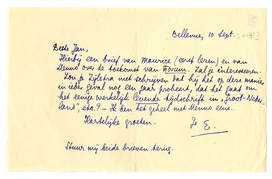 Bellevue, 10 Sept. [1935]
Beste Jan,
Hierbij een brief van Maurice (eerst lezen) en van
Menno over de toekomst van Forum. Zal je interesseren.
Zou je Zijlstra niet schrijven dat hij het op deze manier
in ieder geval nog een jaar probeert, dat het gaat om
het eenige werkelijk levende tijdschrift in "Groot-Neder-
land", etc.? – Ik ben het geheel met Menno eens.
Hartelijke groeten.
Je E.
Stuur mij beide brieven terug.